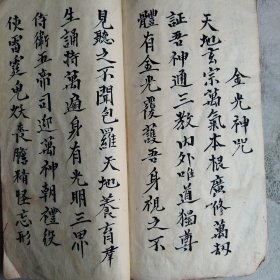 金光神咒
天地玄宗萬氣本根廣修萬劫
証吾神通三教內外唯道獨尊
體有金光覆護吾身視之不
見聽之不聞包羅天地養育羣
生誦持萬遍身有光明三界
侍衛五帝司迎萬神朝禮役
使雷霆鬼妖喪膽精怪忘形